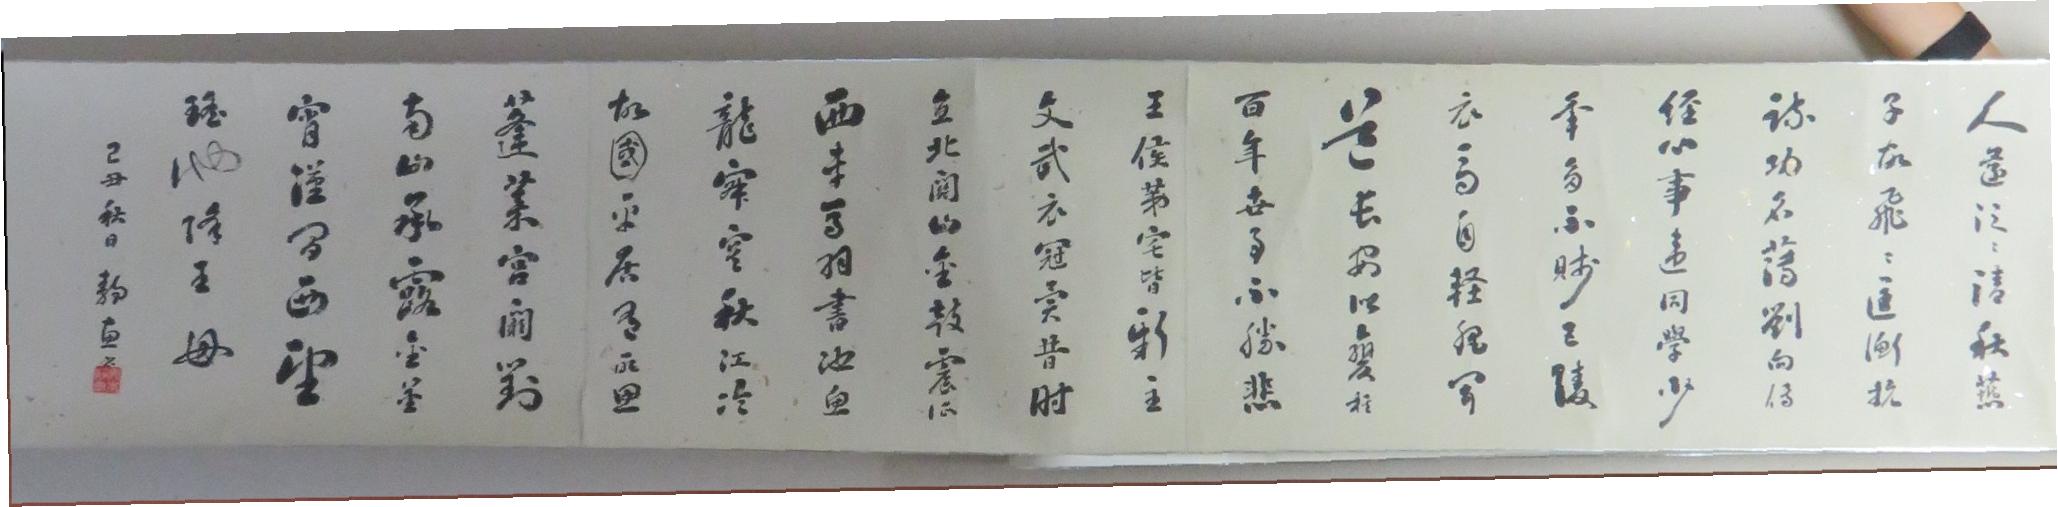 人還泛〻清秋燕
子故飛〻匡衡抗
疏功名薄劉向傳
經心事違同學少
年多不賤五陵
衣馬自輕肥聞
道長安似奕棋
百年世事不勝悲
王侯第宅皆新主
文武衣冠異昔时
直北関山金鼓震征
西車馬羽書遲魚
龍寂寞秋江冷
故國平居有所思
蓬萊宮闕對
南山承露金莖
霄漢間西望
瑤池降王母
己丑秋日